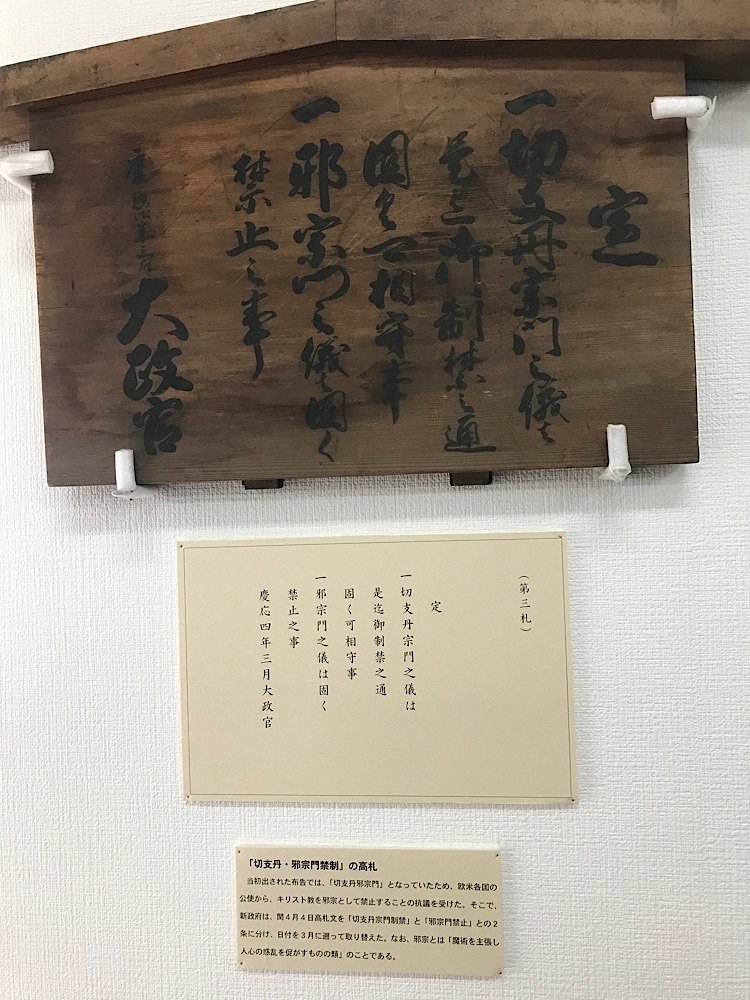 定
一切支丹宗門之儀は
是迄御制禁之通
固く可相守事
一邪宗門之儀は固く
禁止之事
慶応四年三月 大政官
(第三札)
定
一切支丹宗門之儀は
是迄御制禁之通
固く可相守事
一邪宗門之儀は固く
禁止之事
慶応四年三月大政官
「切支丹・邪宗門禁制」の高札
当初出された布告では、「切支丹邪宗門」となっていたため、欧米各国の
公使から、キリスト教を邪宗として禁止することの抗議を受けた。そこで、
新政府は、閏４月４日高札文を「切支丹宗門制禁」と「邪宗門禁止」との２
条に分け、日付を３月に遡って取り替えた。なお、邪宗とは「魔術を主張し
人心の惑乱を促がすものの類」のことである。